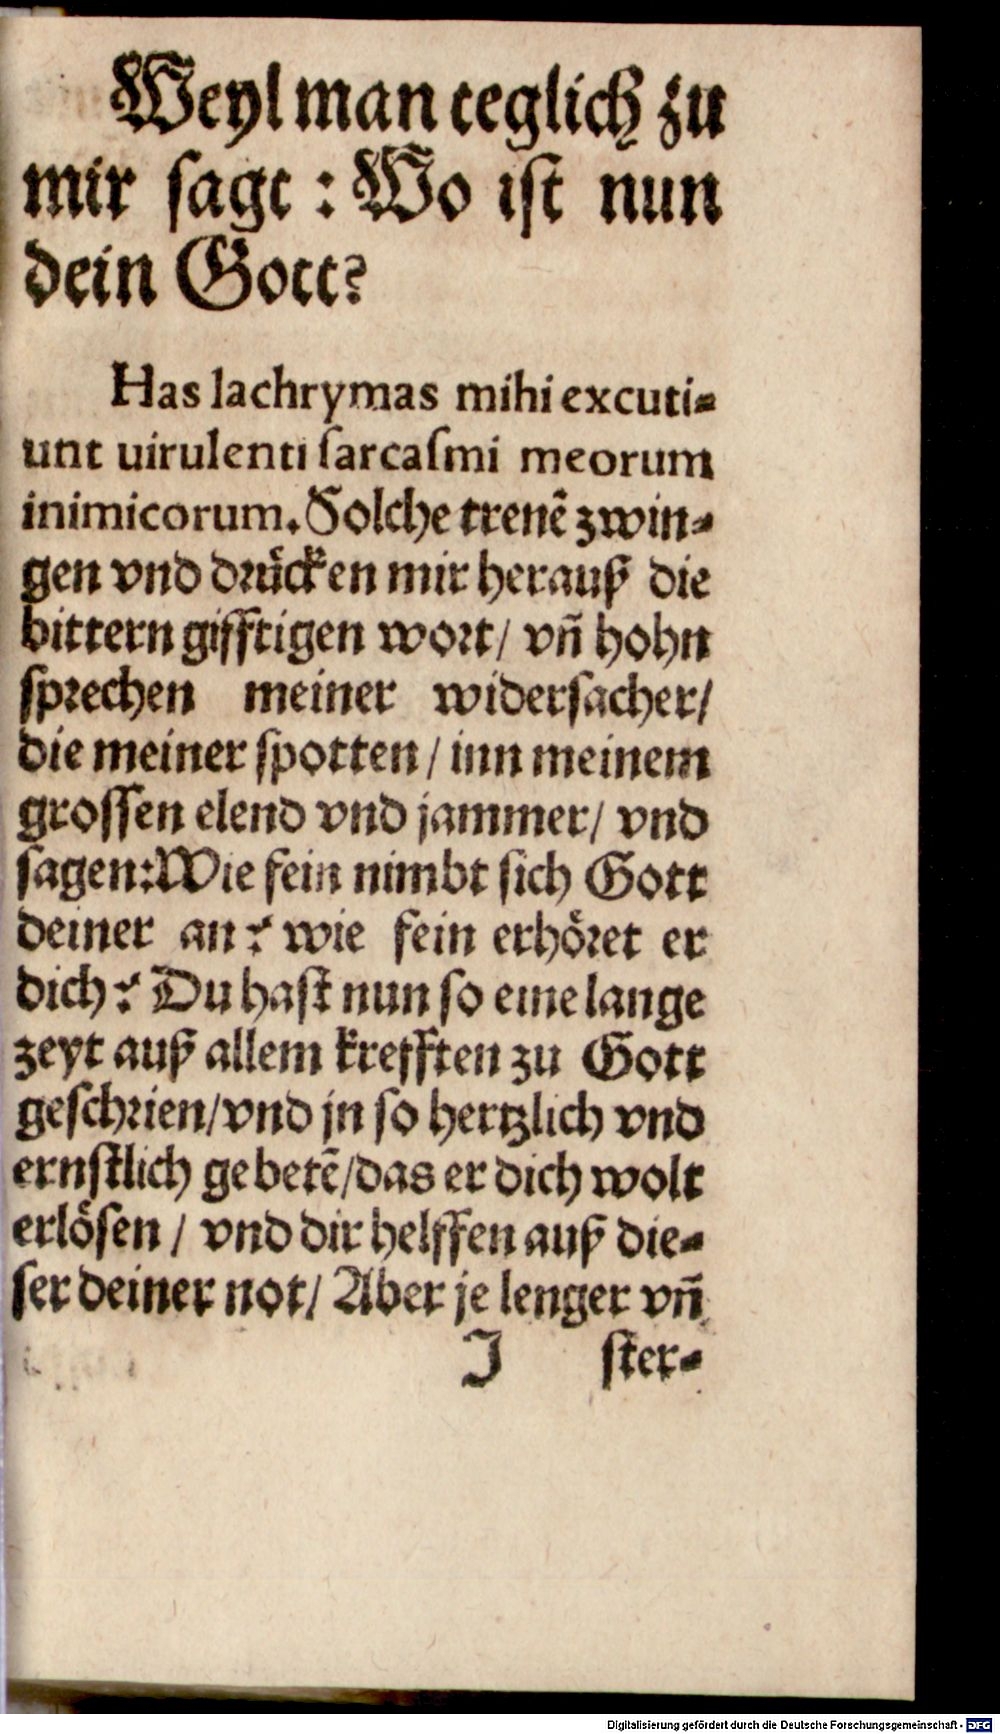 Weyl man teglich zu
mir sagt: Wo ist nun
dein Gott?
Has lachrymas mihi excuti-
unt uirulenti sarcasmi meorum
inimicorum. Solche trenẽ zwin-
gen vnd drücken mir herauß die
bittern gifftigen wort/ vñ hohn
sprechen meiner widersacher/
die meiner spotten/ inn meinem
grossen elend vnd jammer/ vnd
sagen: Wie fein nimbt sich Gott
deiner an? wie fein erhöret er
dich? Du hast nun so eine lange
zeyt auß allem krefften zu Gott
geschrien/ vnd jn so hertzlich vnd
ernstlich gebetẽ/ das er dich wolt
erlösen/ vnd dir helffen auß die-
ser deiner not/ Aber je lenger vñ
J ster-
Digitalisierung gefördert durch die Deutsche Forschungsgemeinschaft - DFG